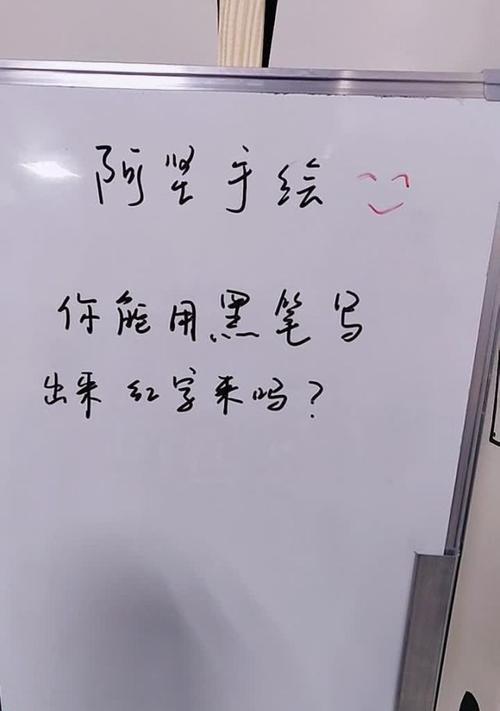 阿坚手绘
你能用黑笔写
出来红字来吗?